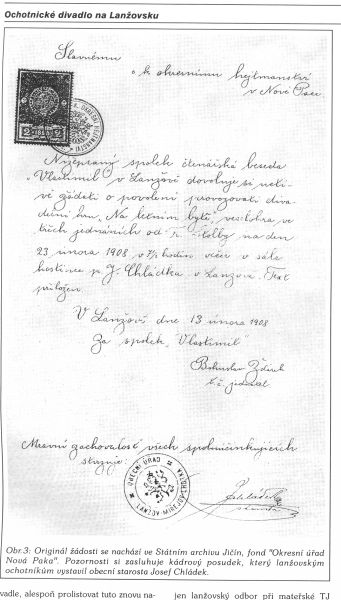 Ochotnické divadlo na Lanžovsku
Slavnému
c. k. okresnímu hejtmanství
v Nové Pace
Nížepsaný spolek čtenářská beseda
"Vlastimil" v Lanžově dovoluje si uctivě
žádati o povolení provozovati diva-
delní hru, "Na letním bytě", veselohra ve
třech jednáních od Štolby na den
23 února 1908 v 7½ hodin večer v sále
hostince p. J. Chládka v Lanžově. Text
přiložen.
V Lanžově dne 13 února 1908
Za spolek "Vlastimil"
Bohuslav
t. č. jednatel
Mravní zachovalost všech spoluúčinkujících
stvrzuje:
OBECNÍ ÚŘAD
LANŽOV
Chládek
starosta
Obr.3: Originál žádosti se nachází ve Státním archivu Jičín, fond "Okresní úřad
Nová Paka". Pozornosti si zasluhuje kádrový posudek, který lanžovským
ochotníkům vystavil obecní starosta Josef Chládek.
vadle, alespoň prolistovat tuto znovu na-
jen lanžovský odbor při mateřské TJ